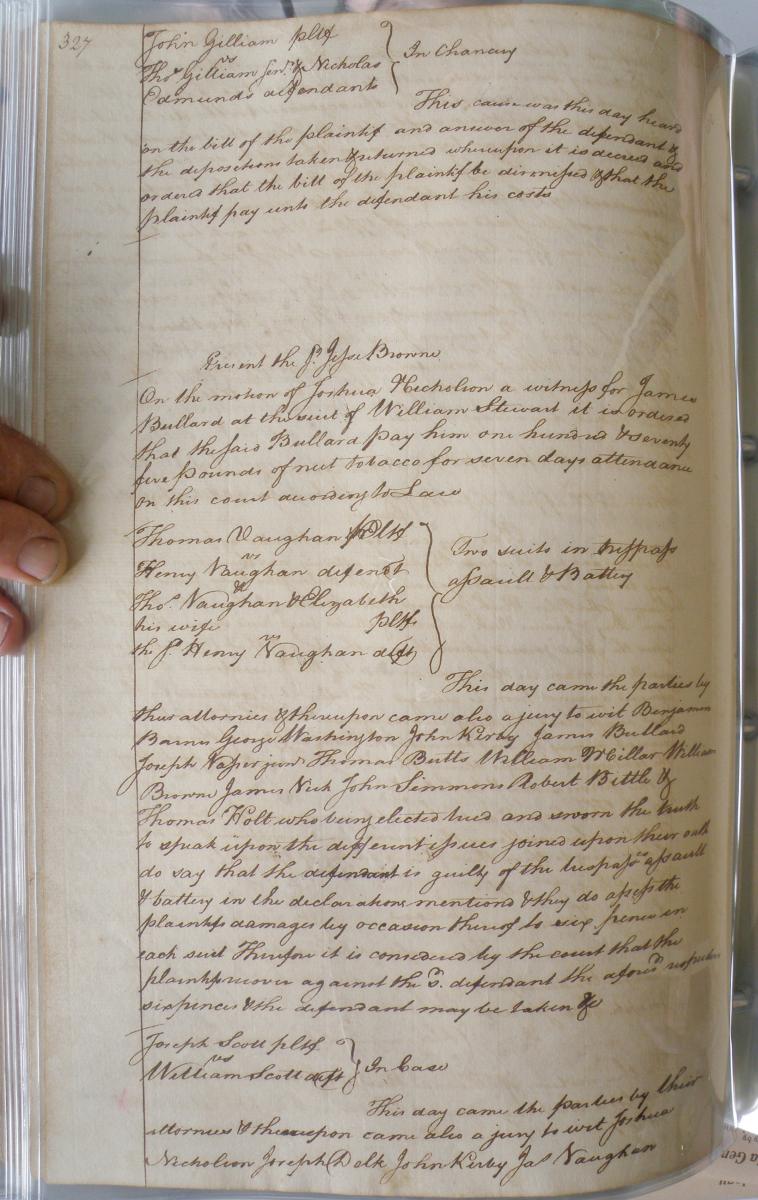 327
John Gilliam pltf
vs
Thos Gilliam senr. & Nicholas
Edmunds defendants
In Chancery
This cause was this day heard
on the bill of the plaintif and answer of the defendant &
the depositions taken & returned whereupon it is decreed and
ordered that the bill of the plaintif be dismissed & that the
plaintif pay unto the defendant his costs
Present the sd. Jesse Browne
On the motion of Joshua Nicholson a witness for James
Bullard at the suit of William Stewart it is ordered
that the said Bullard pay him one hundred & seventy
five pounds of net tobacco for seven days attendance
on this court according to Law
Thomas Vaughan pltf
vs
Henry Vaughan defendt
&
Thos. Vaughan & Elizabeth
his wife pltfs
vs
the sd. Henry Vaughan deft
Two suits in trespass
assault & Battery
This day came the parties by
their attornies & thereupon came also a jury to wit Benjamin
Barnes George Washington John Kerby James Bullard
Joseph Vasser junr Thomas Butts William Millar William
Browne James Nick John Simmons Robert Bittle &
Thomas Holt who being elected tried and sworn the truth
to speak upon the different issues joined upon their oath
do say that the defendant is guilty of the trespass assault
& battery in the declarations mentiond & they do assess the
plaintifs damages by occasion thereof to six pence in
each suit Therefore it is considered by the court that the
plaintifs recover against the sd. defendant the aforesd respective
sixpences & the defendant may be taken &c
Joseph Scott pltf
vs
William Scott deft
In Case
This day came the parties by their
attornies & thereupon came also a jury to wit Joshua
Nicholson Joseph Delk John Kerby Jas Vaughan